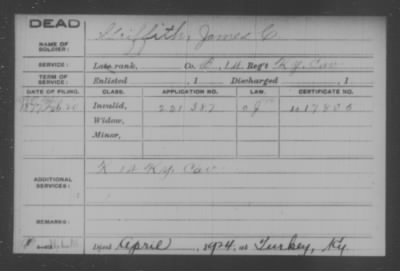 DEAD
NAME OF SOLDIER: Griffith, James C
SERVICE: Late rank, Co. L, 1st Reg't Ky. Cav
TERM OF SERVICE: Enlisted , 1 Discharged , 1
DATE OF FILING. CLASS. APPLICATION NO. LAW. CERTIFICATE NO.
1877 Feb 20 Invalid, 221387
Widow,
Minor,
ADDITIONAL SERVICES: K 1st Ky. Cav
REMARKS:
Died April , 1924, at Turkey, Ky.